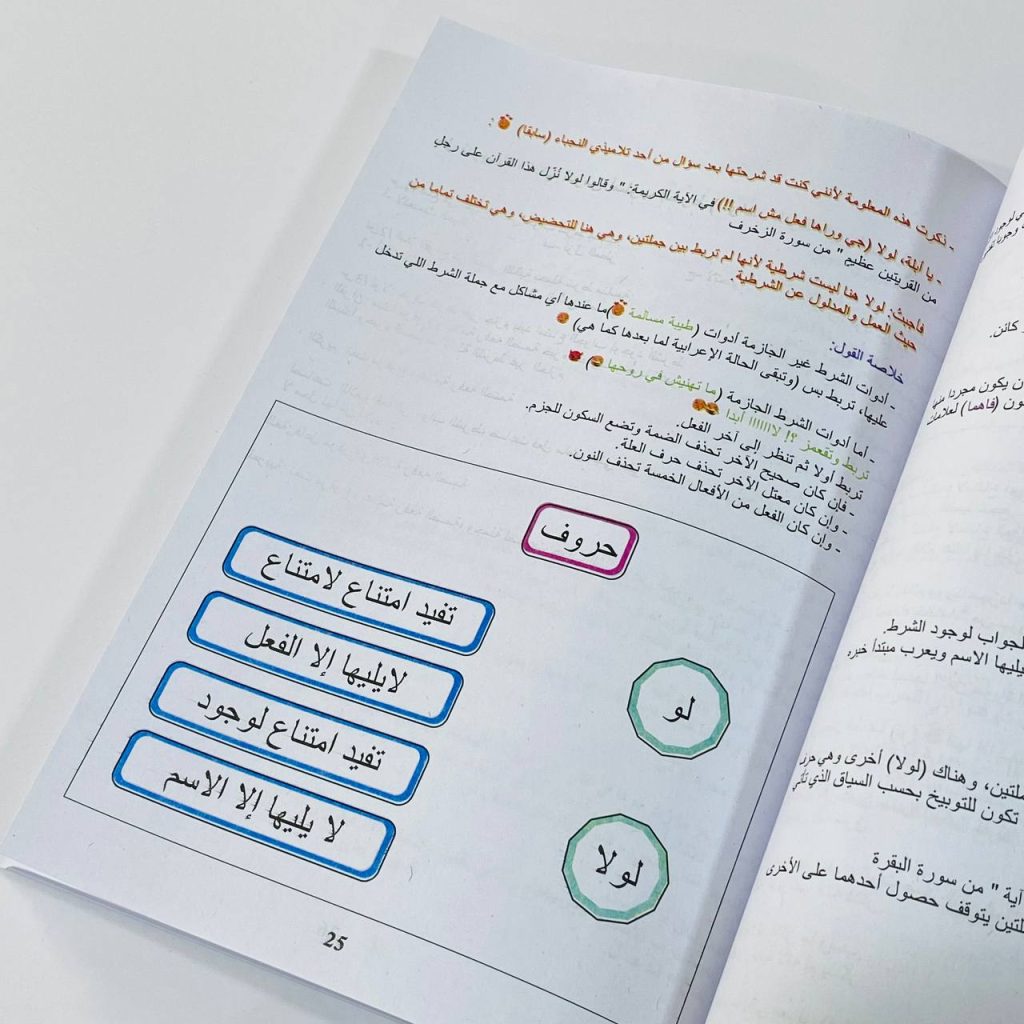 - ذكرت هذه المعلومة لأنني كنت قد شرحتها بعد سؤال من أحد تلاميذي النجباء (سابقا) :
- يا أبلة، لولا (جي وراها فعل مش اسم !!) في الآية الكريمة: " وقالوا لولا نُزّل هذا القرآن على رجل
من القريتين عظيم " من سورة الزخرف
فأجبتُ: لولا هنا ليست شرطية لأنها لم تربط بين جملتين، وهي هنا للتحضيض، وهي تختلف تماما من
حيث العمل والمدلول عن الشرطية.
خلاصة القول:
- أدوات الشرط غير الجازمة أدوات (طيبة مسالمة) ما عندها أي مشاكل مع جملة الشرط اللي تدخل
عليها، تربط بس (وتبقى الحالة الإعرابية لما بعدها كما هي)
- أما أدوات الشرط الجازمة (ما تهنيش في روحها)
تربط وتقعمز ؟! لااااااا أبدا
تربط أولا ثم تنظر إلى آخر الفعل.
- فإن كان صحيح الآخر تحذف الضمة وتضع السكون للجزم.
- وإن كان معتل الآخر تحذف حرف العلة.
- وإن كان الفعل من الأفعال الخمسة تحذف النون.
حروف
تفيد امتناع لامتناع
لايليها إلا الفعل
لو
تفيد امتناع لوجود
لا يليها إلا الاسم
لولا
25
كائن.
ن يكون مجردا منها
ون (فاهما) لعلامات
لجواب لوجود الشرط.
يليها الاسم ويعرب مبتدأ خبره
ملتين، وهناك (لولا) أخرى وهي حرف
تكون للتوبيخ بحسب السياق الذي تأتي
آية " من سورة البقرة
ملتين يتوقف حصول أحدهما على الأخرى